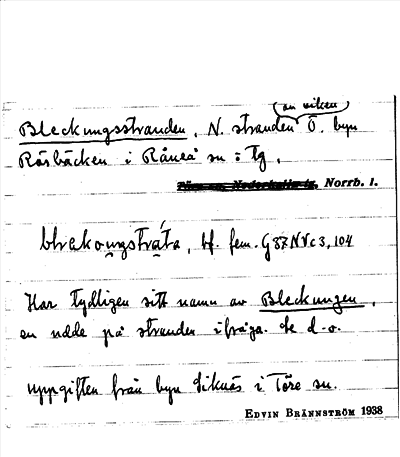 (av viken)
Bleckungsstranden, N. stranden Ö. byn
Rösbäcken i Råneå sn : Tg.
Töre sn, Nederkalix tg, Norrb. l.
blækoŋstráta, bf. fem. G 87 N Vc 3, 104
Har tydligen sitt namn av Bleckungen,
en udde på stranden ifråga. Se d. o.
Uppgiften från byn Siknäs i Töre sn.
EDVIN BRÄNNSTRÖM 1938